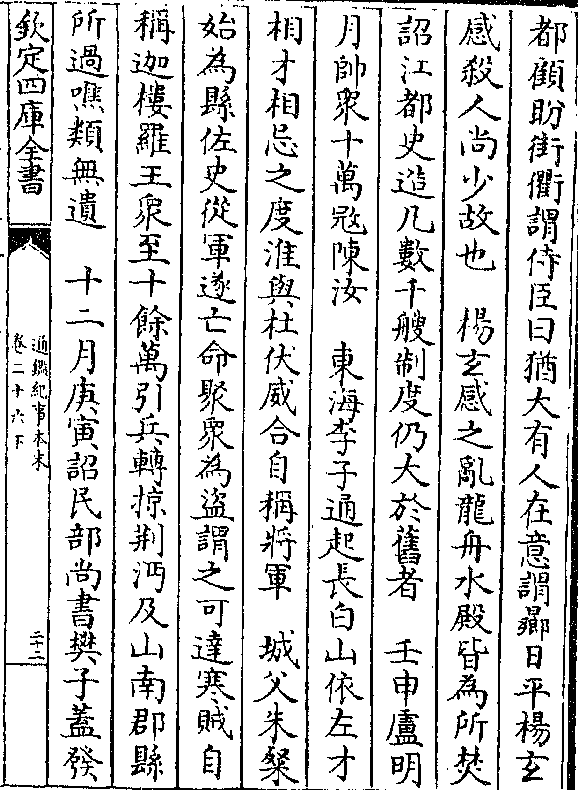 都顧盼街衢謂侍臣曰猶大有人在意謂鄉日平楊玄
感殺人尚少故也　楊玄感之亂龍舟水殿皆為所焚
詔江都史造凡數千艘制度仍大於舊者　壬申盧明
月帥衆十萬寇陳汝　東海李子通起長白山依左才
相才相忌之度淮與杜伏威合自稱將軍　城父朱粲
始為縣佐史從軍遂亡命聚衆為盜謂之可達寒賊自
稱迦樓羅王衆至十餘萬引兵轉掠荆沔及山南郡縣
所過噍類無遺　十二月庚寅詔民部尚書樊子蓋發
欽定四庫全書
通鑑紀事本末
卷二十六下
二十二